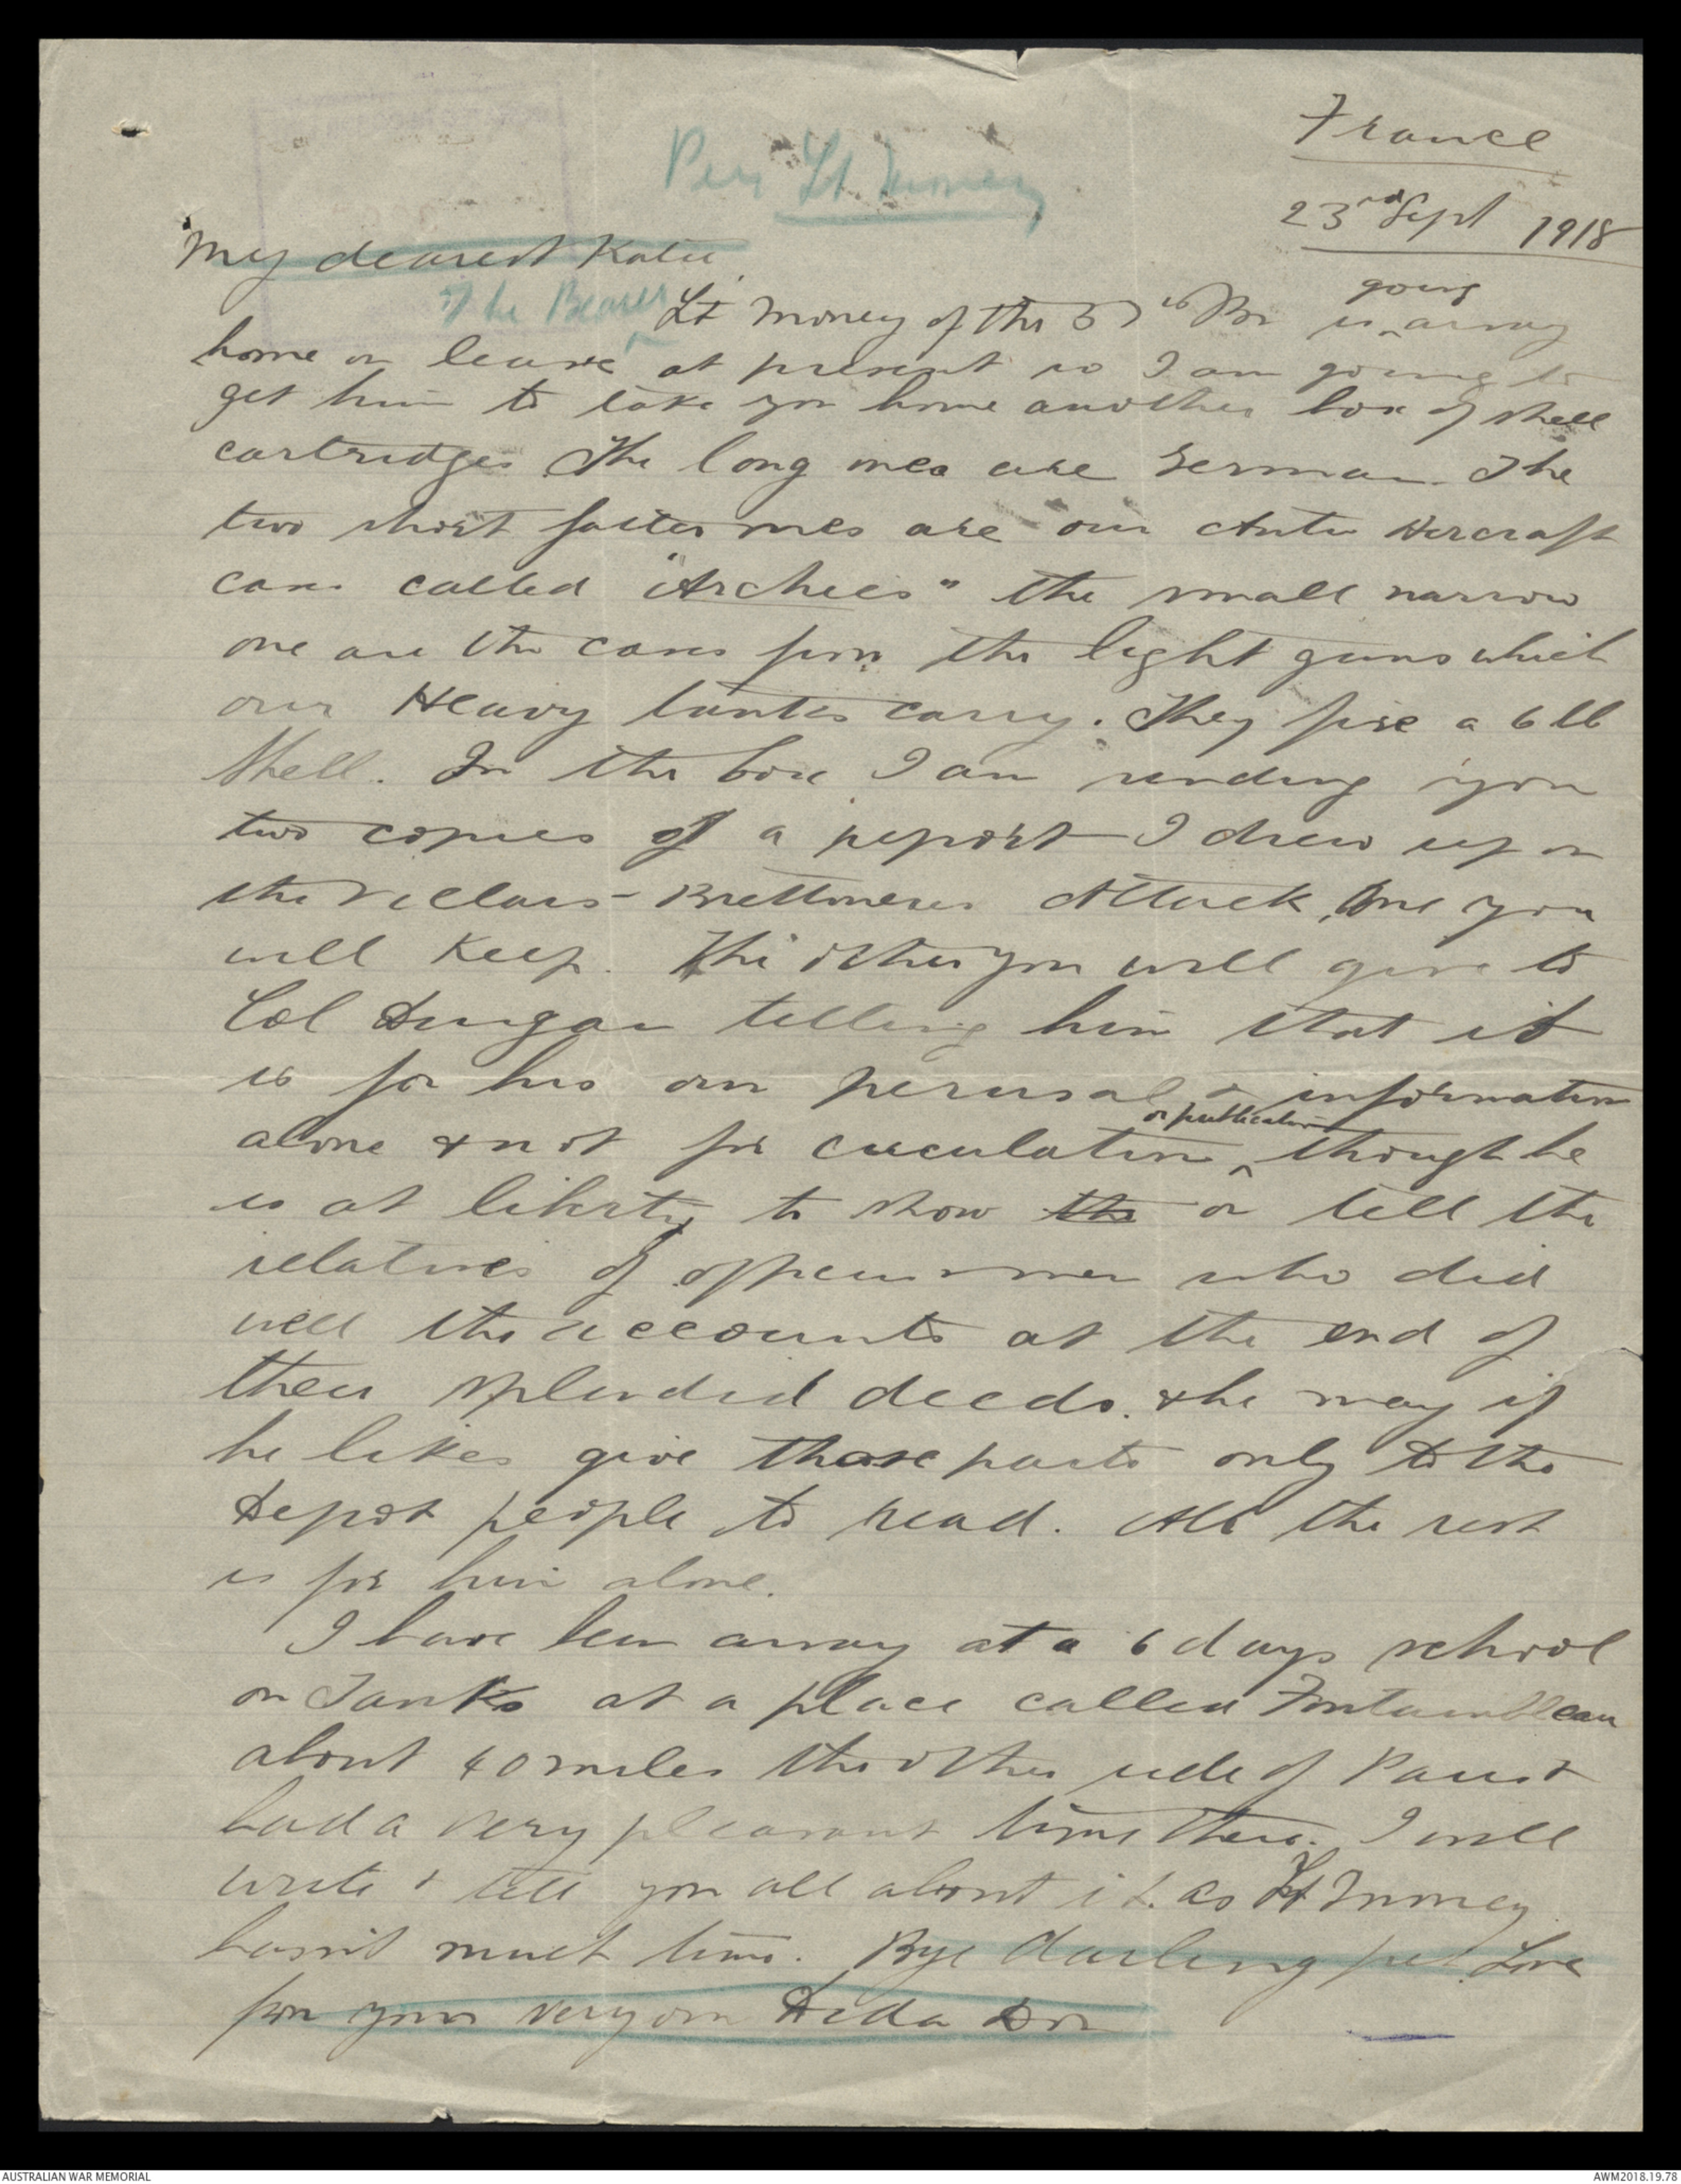 France
Per Lt Money
23rd Sept 1918
My dearest Katie
going
The Bearer Lt Money of the 57th Bn is away
home on leave at present so I am going to
get him to take you home another box of shell
cartridges The long ones are German. The
two short fatter ones are our Anti Aircraft
cases called "Archies" the small narrow
one are the cases from the light guns which
our Heavy tanks carry. They fire a 6 lb
shell. In the box I am sending you
two copies of a report I drew up on
the Villers-Brettoneux Attack, One you
will keep. The other you will give to
Col Duigan telling him that it
is for his own perusal & information
or publication
alone & not for circulation though he
is at liberty to show the or tell the
relatives of officers & men who did
well the accounts at the end of
their splendid deeds. & he may if
he likes give those parts only to the
Depot people to read. All the rest
is for him alone.
I have been away at a 6 days school
on Tanks at a place called Fontainbleau
about 40 miles the other side of Paris &
had a very pleasant time there. I will
write & tell you all about it. as Lt Money
hasn't much time. Bye darling pet. Love
from your very own Dida Don
AUSTRALIAN WAR MEMORIAL
AWM2018.19.78